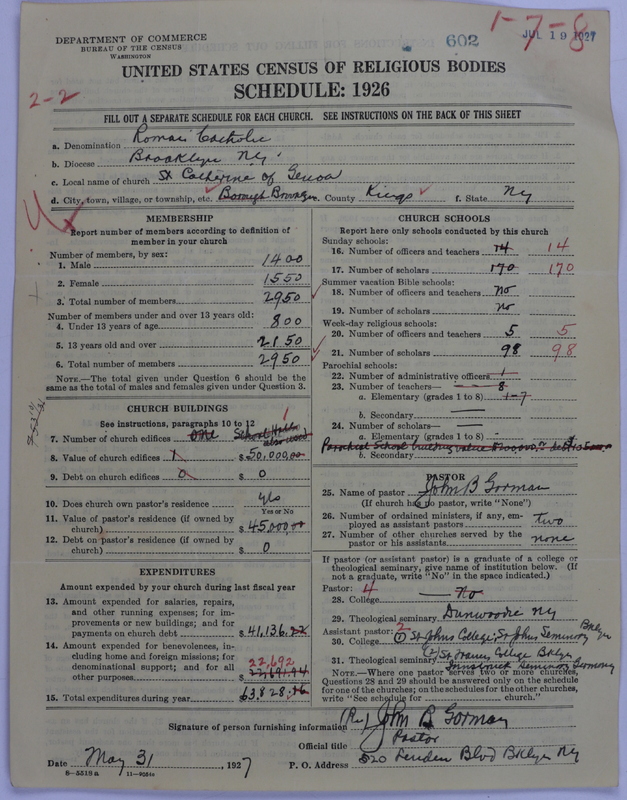 DEPARTMENT OF COMMERCE
BUREAU OF THE CENSUS
WASHINGTON
602
1-7-8
JUL 19 1927
UNITED STATES CENSUS OF RELIGIOUS BODIES
SCHEDULE: 1926
2-2
FILL OUT A SEPARATE SCHEDULE FOR EACH CHURCH. SEE INSTRUCTIONS ON THE BACK OF THIS SHEET
a. Denomination Roman Catholic
b. Diocese Brooklyn Ny
c. Local name of church St Catherine of Genoa
d. City, town, village, or township, etc. Borough e. County Kings f. State Ny
MEMBERSHIP
Report number of members according to definition of
member in your church
Number of members, by sex:
1. Male 1400
2. Female 1550
3. Total number of members 2950
Number of members under and over 13 years old:
4. Under 13 years of age 800
5. 13 years old and over 2150
6. Total number of members 2950
NOTE.—The total given under Question 6 should be the
same as the total of males and females given under Question 3.
CHURCH BUILDINGS
See instructions, paragraphs 10 to 12
7. Number of church edifices one School Hall also used 1
8. Value of church edifices $ 50,000.00
9. Debt on church edifices $ 0
10. Does church own pastor's residence yes
Yes or No
11. Value of pastor's residence (if owned by
church) $ 45000,00
12. Debt on pastor's residence (if owned by
church) $ 0
EXPENDITURES
Amount expended by your church during last fiscal year
13. Amount expended for salaries, repairs,
and other running expenses; for im-
provements or new buildings; and for
payments on church debt $ 41,136.22
14. Amount expended for benevolences, in-
cluding home and foreign missions; for
denominational support; and for all
other purposes 22,692
$ 22,691.94
15. Total expenditures during year 63,828.16
CHURCH SCHOOLS
Report here only schools conducted by this church
Sunday schools:
16. Number of officers and teachers 14 14
17. Number of scholars 170 170
Summer vacation Bible schools:
18. Number of officers and teachers no
19. Number of scholars no
Week-day religious schools:
20. Number of officers and teachers 5 5
21. Number of scholars 98 98
Parochial schools:
22. Number of administrative officers 1
23. Number of teachers— 8
a. Elementary (grades 1 to 8) 1-7
b. Secondary
24. Number of scholars—
a. Elementary (grades 1 to 8)
Parochial School building value
b. Secondary
PASTOR
25. Name of pastor John B Gorman
(If church has no pastor, write "None")
26. Number of ordained ministers, if any, em-
ployed as assistant pastors two
27. Number of other churches served by the
pastor or his assistants none
If pastor (or assistant pastor) is a graduate of a college or
theological seminary, give name of institution below. (If
not a graduate, write "No" in the space indicated.)
Pastor: 4
28. College No
29. Theological seminary Dunwoodie Ny
Assistant pastor: 2
30. College (1) St Johns College; St John Seminary Bklyn
(2) St Francis College Bklyn
31. Theological seminary Innsbruck Seminary Germany
NOTE.—Where one pastor serves two or more churches,
Questions 28 and 29 should be answered only on the schedule
for one of the churches; on the schedules for the other churches,
write "See schedule for church."
Signature of person furnishing information (Rev) John B Gorman
Official title Pastor
Date May 31, 1927 P. O. Address 520 Linden Blvd Bklyn Ny
8-5519a 11-9051a